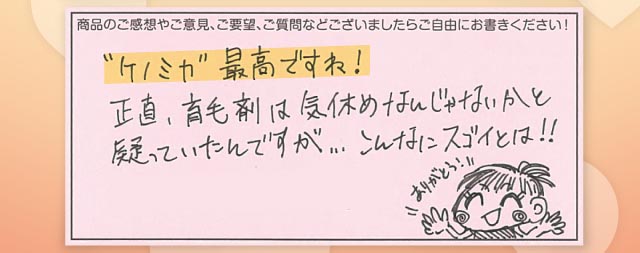 商品のご感想やご意見、ご要望、ご質問などございましたらご自由にお書きください!
"ケノミカ" 最高ですね!
正直、育毛剤は気休めなんじゃないかと
疑っていたんですが… こんなにスゴイとは!!
ありがとう!